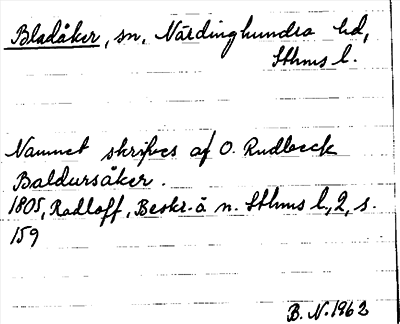 Bladåker, sn, Närdinghundra hd,
Sthms l.
Namnet skrifves af O. Rudbeck
Baldursåker.
1805, Radloff, Beskr. ö n. Sthms l., 2, s.
159
B. N. 1962